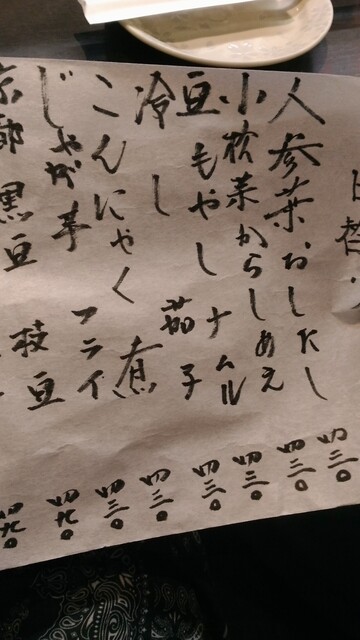 人参葉おしたし 四三〇
小松菜からしあえ 四三〇
豆もやしナムル 四三〇
冷し茄子 四三〇
こんにゃく煮 四三〇
じゃが芋フライ 四三〇
京都黒豆枝豆 四九〇
四九〇